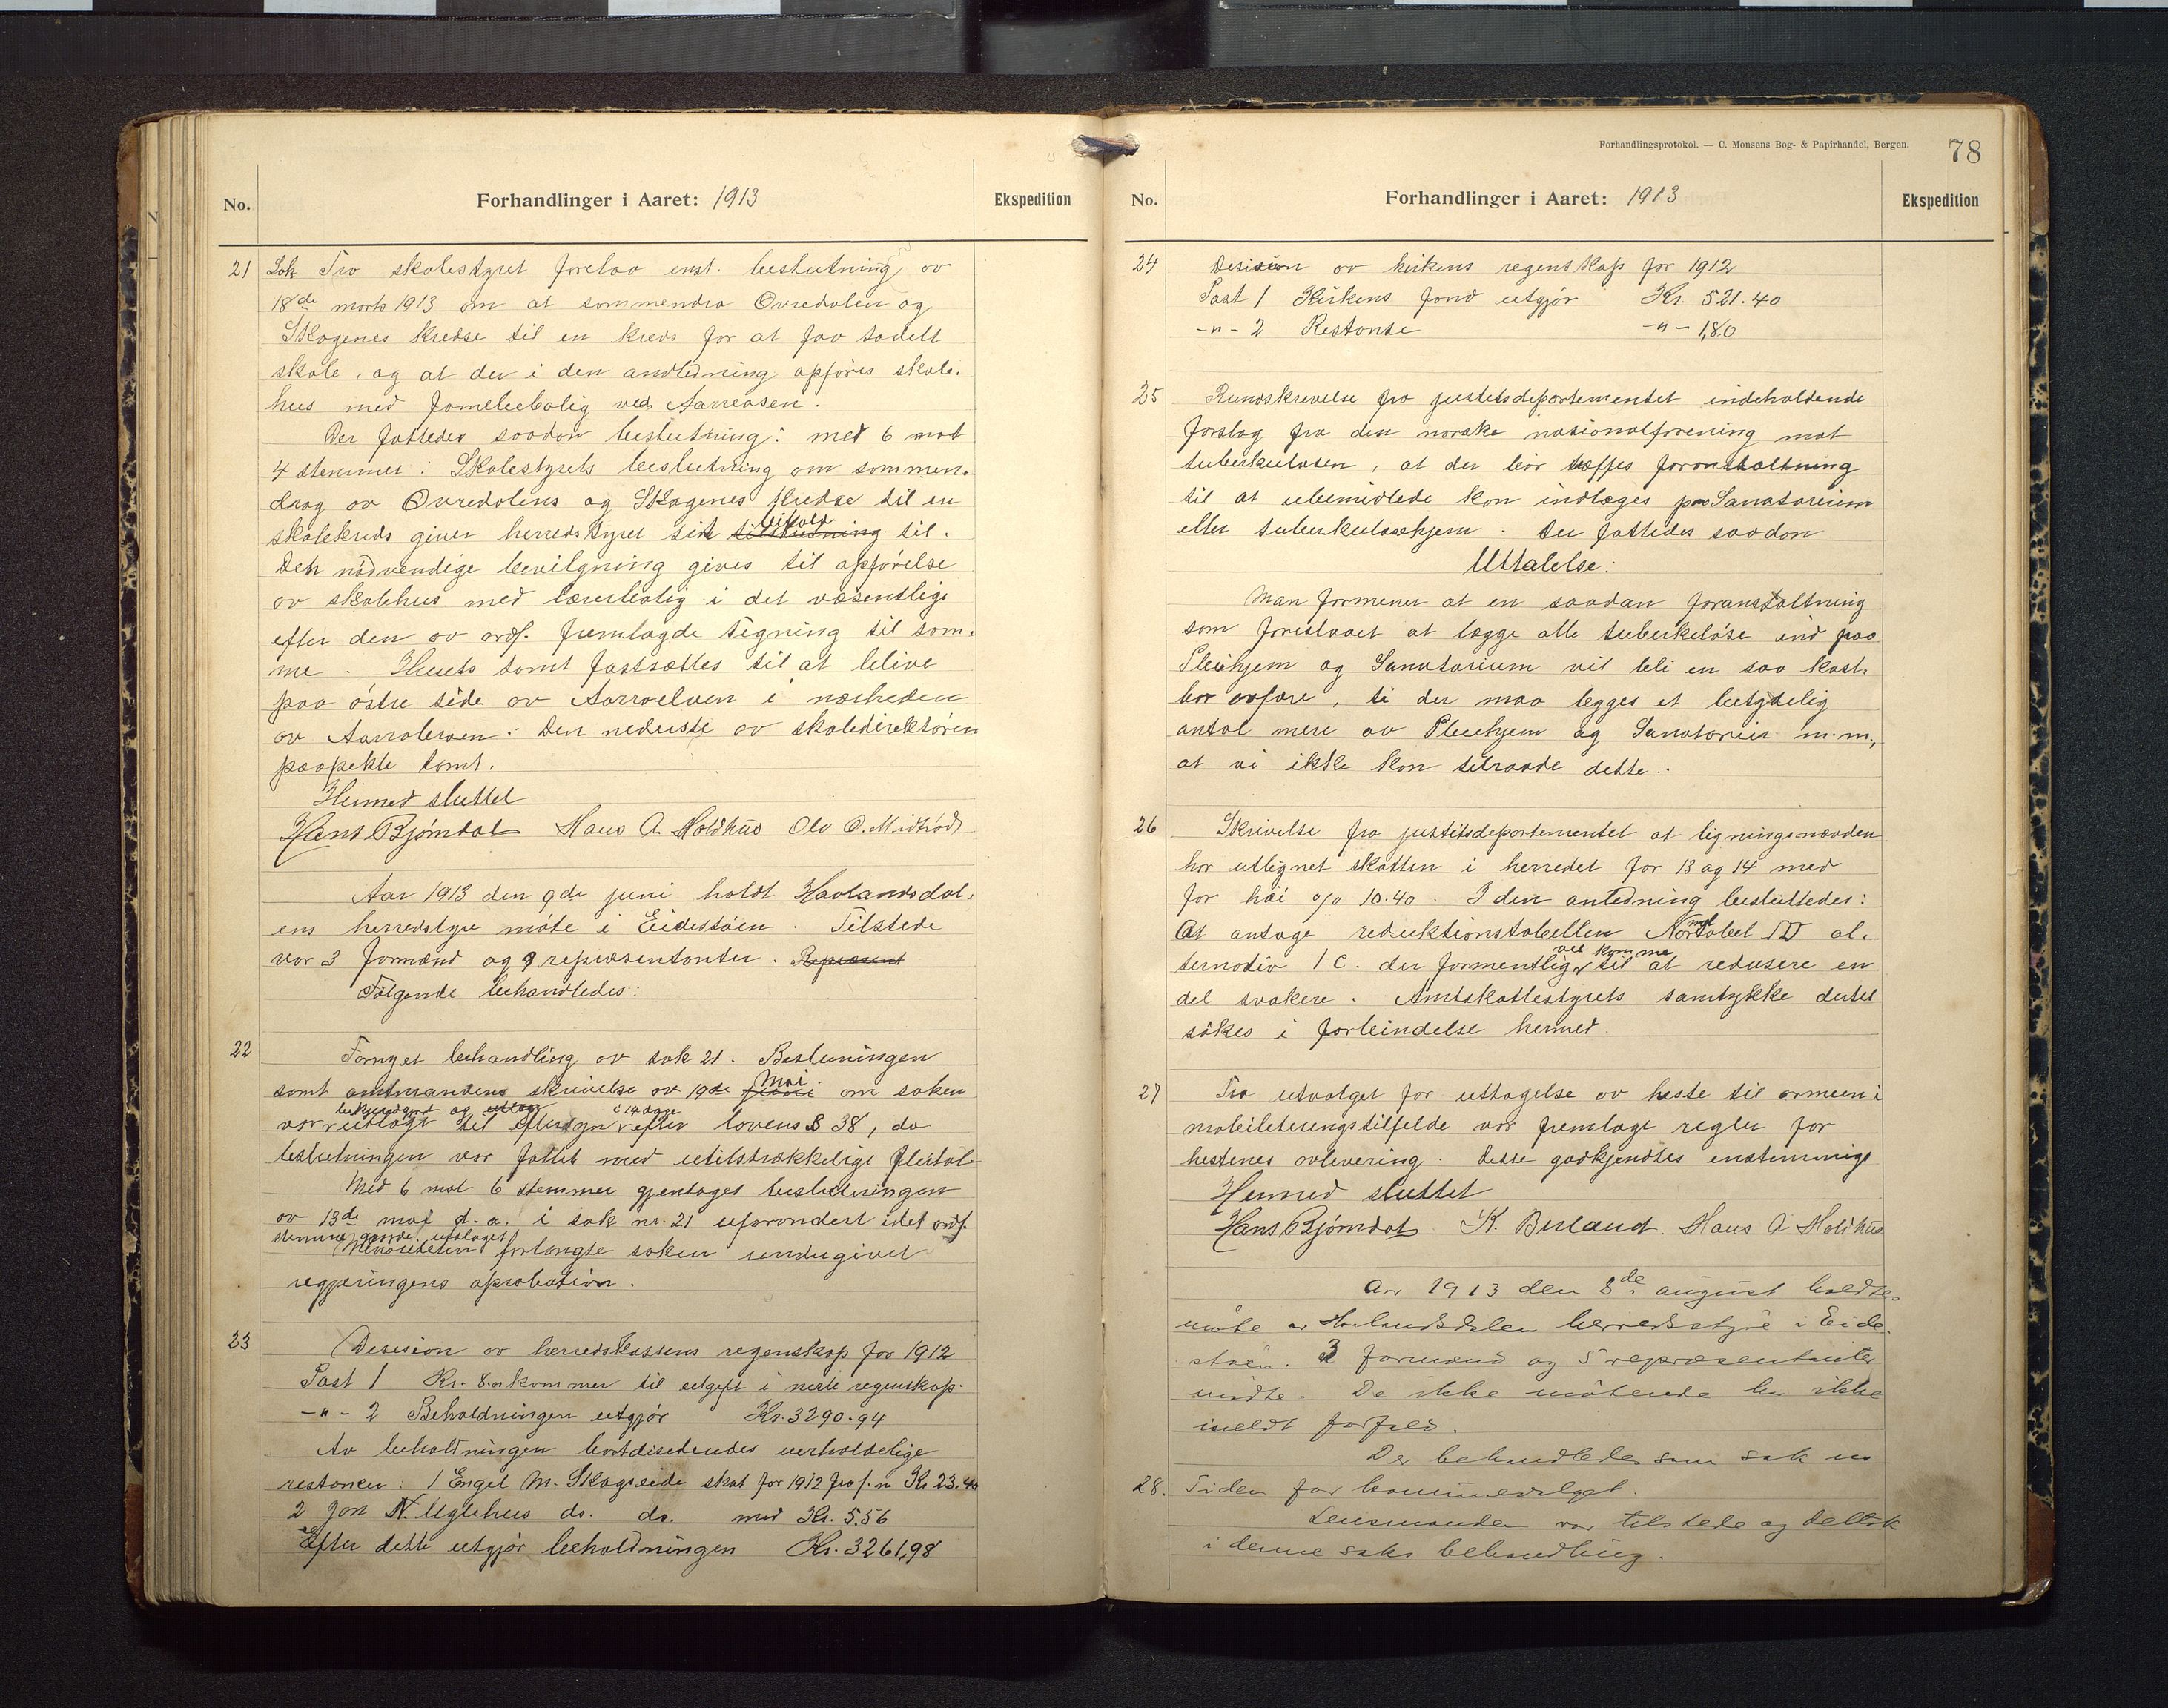 No.
Forhandlinger i Aaret: 1913
Ekspedition
21 Sak Fra skolestyret forelaa enst. beslutning av
18de marts 1913 om at sammendra Øvredalen og
Skogenes kredse til en kreds for at faa todelt
skole, og at der i den andledning opføres skole-
hus med familiebolig ved Aarreosen.
Der fattedes saadan beslutning: med 6 mot
4 stemmer: Skolestyrets beslutning om sammen-
drag av Øvredalens og Skogenes kredse til en
skolekreds giver herredstyret sit tilslutning bifald til.
Den nødvendige bevilgning gives til opførelse
av skolehus med lærerbolig i det væsentlige
efter den av ordf. fremlagde tegning til sam-
me. Husets tomt fastsættes til at blive
paa østre side av Aarraelven i nærheden
av Aarrabroen: Den nederste av skoledirektøren
paapekte tomt.
Hermed sluttet
Hans Bjørndal Hans A. Holdhus Ola O. Midtrød
Aar 1913 den 9de juni holdt Haalandsdal-
ens herredstyre møte i Eidestøen. Tilstede
var 3 formænd og 9 representanter. Represent
Følgende behandledes:
22 Fornyet behandling av sak 21. Beslutningen
samt amtmandens skrivelse av 19de juni Mai om saken
var bekjendgjort og utlagt til eftersyn i 14 dage efter lovens § 38, da
beslutningen var fattet med utilstrækkelige flertal
Med 6 mot 6 stemmer gjentages beslutningen
av 13de mai d.a. i sak nr. 21 uforandert idet ordf.
stemme gjorde utslaget
Minoriteten forlangte saken undergivet
regjeringens aprobation.
23 Desision av herredskassens regenskap for 1912
Post 1 Kr. 8.- kommer til utgift i neste regenskap.
-"- 2 Beholdningen utgjør Kr. 3290.94
Av beholdningen bortdisederes uerholdelige
restancer: 1 Engel M. Skogseide skat for 1912 Kr 23.40
2 Jon N. Uglehus do. do. med Kr. 5.56
Efter dette utgjør beholdningen Kr. 3261,98
Forhandlingsprotokol. — C. Monsens Bog- & Papirhandel, Bergen.
78
No.
Forhandlinger i Aaret: 1913
Ekspedition
24 Desision av kirkens regenskap for 1912
Post 1 Kirkens fond utgjør Kr. 521.40
-"- 2 Restanse -"- 1,80
25 Rundskrivelse fra justitsdepartementet indeholdende
forslag fra den norske nationalforening mot
tuberkulosen, at der bør træffes foranstaltning
til at ubemidlede kan indlæges paa Sanatorium
eller tuberkulosehjem. Der fattedes saadan
Uttalelse:
Man formener at en saadan foranstaltning
som foreslaaet at lægge alle tuberkeløse ind paa
Pleiehjem og Sanatorium vil bli en saa kost-
bar avfære, ti der maa legges et betydelig
antal mere av Pleiehjem og Sanatorier m.m.,
at vi ikke kan tilraade dette.
26 Skrivelse fra justitsdepartementet at ligningsnævnden
har utlignet skatten i herredet for 13 og 14 med
for høi % 10.40. I den anledning besluttedes:
At antage reduktionstabellen Normaltabel IV al-
ternativ 1 c. der formentlig vil komme til at redusere en
del svakere. Amtskattestyrets samtykke dertil
søkes i forbindelse hermed.
27 Fra utvalget for uttagelse av heste til armeen i
mobiliteringstilfelde var fremlagt regler for
hestenes avlevering. Disse godkjendtes enstemmige
Hermed sluttet
Hans Bjørndal K. Berland. Hans A Holdhus
Aar 1913 den 8de august holdtes
møte av Haalandsdalen herredsstyre i Eide-
støen. 3 formænd og 5 repræsentanter
mødte. De ikke møtende har ikke
meldt forfald.
Der behandledes som sak nr
28. Tiden for kommunevalget.
Lensmanden var tilstede og deltok
i denne saks behandling.